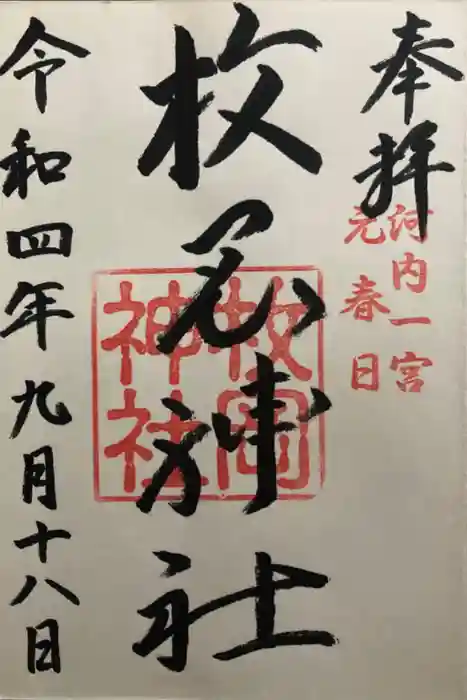 奉拝
河内一宮
元春日
枚岡神社
枚岡神社
令和四年九月十八日